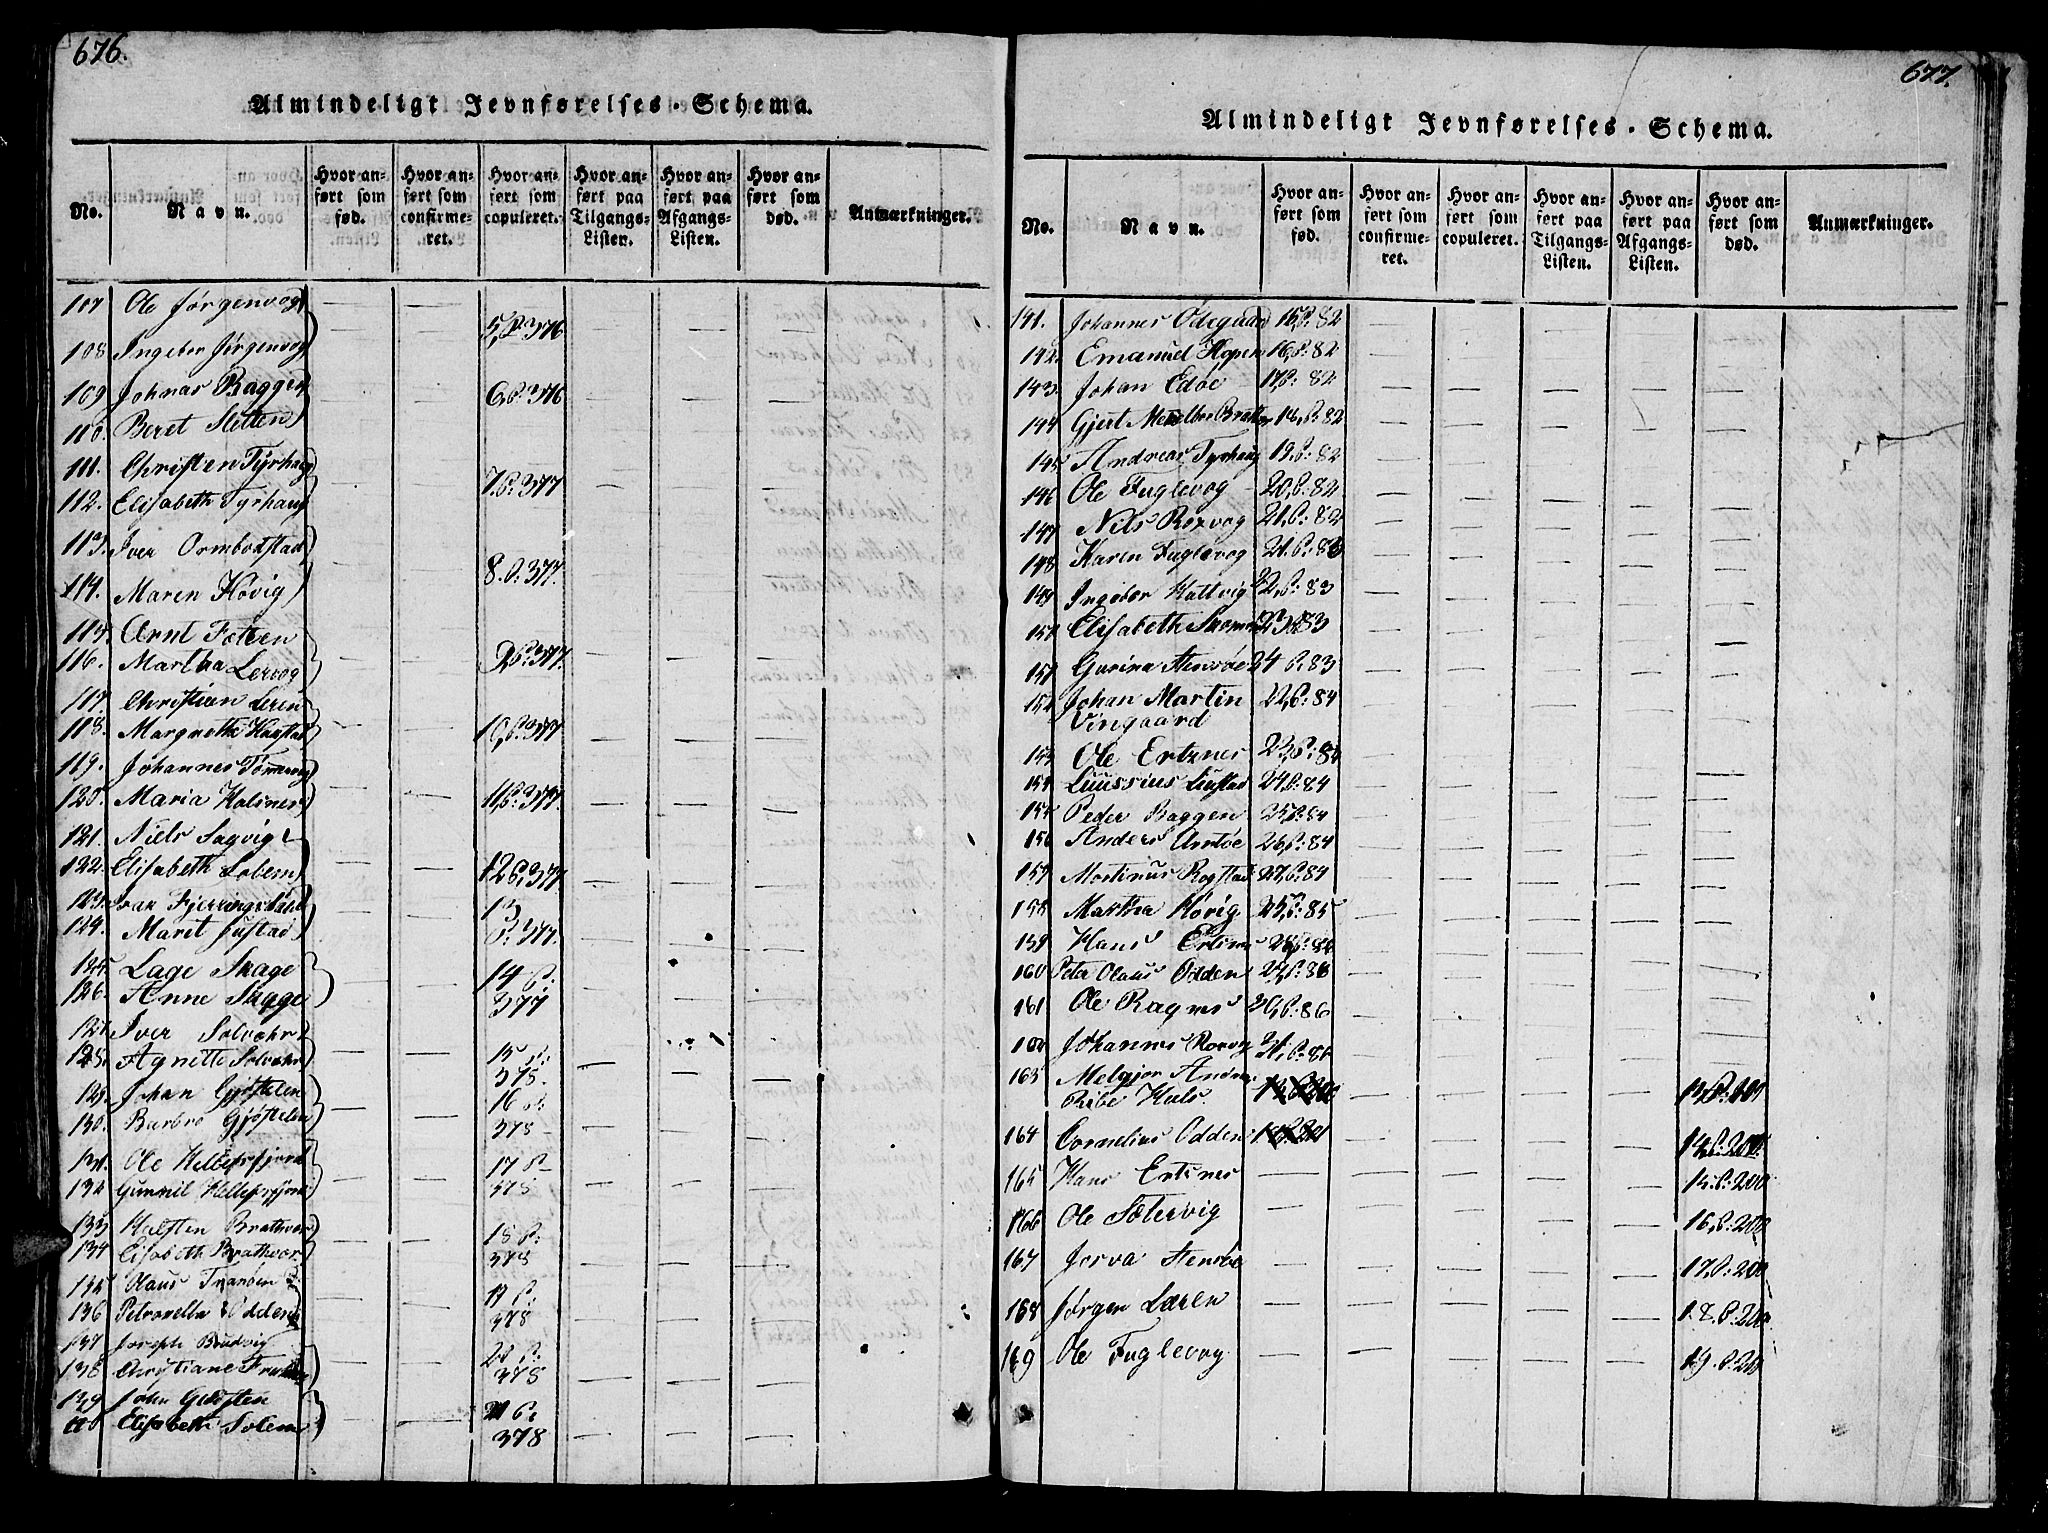 676.
Almindeligt Jevnførelses-Schema.
No.
Navn.
Hvor anført som fød.
Hvor anført som confirmeret.
Hvor anført som copuleret.
Hvor anført paa Tilgangs-Listen.
Hvor anført paa Afgangs-Listen.
Hvor anført som død.
Anmærkninger.
107 Ole Jørgenvog
5, P 376
108 Ingebor Jørgenvog
109 Johnas Baggen 6, P: 376
110. Beret Stetten
111. Christen Tyrhaug
7. P: 377
112. Elisabeth Tyrhaug
113. Iver Ormbodstad
8. P: 377.
114. Maren Høvig
115. Arnt
116. Martha Lervog P: 377.
117. Christian Leren
118. Margrethe 10, P: 377
119. Johannes
120. Maria Halsnes 11, P: 377.
121. Niels Sagvig
122. Elisabeth Solem 12 P. 377
123.
13
124. Maret Gustad P: 377.
125. Lage Skage
14 P:
126. Anne Skage
377
127. Iver Solvahr
128. Agnette Solvahr 15 P:
378.
129. Johan Gjøstelen
16 P:
130. Barbro Gjøstelen
378
131. Ole
17 P
132. Gunnil
378
133 Halsten Brathvær
18 P:
134 Elisabeth Brathvær
378
135 Olaus
19 P.
136 Petronella Odden
378
137 Joseph
20 P:
138 Christiane
378
139 John
140 Elisabeth Solem
21 P.
378
677.
Almindeligt Jevnførelses-Schema.
No.
Navn.
Hvor anført som fød.
Hvor anført som confirmeret.
Hvor anført som copuleret.
Hvor anført paa Tilgangs-Listen.
Hvor anført paa Afgangs-Listen.
Hvor anført som død.
Anmærkninger.
141. Johannes Ødegaard 15, P: 82
142. Emanuel Hopen 16, P: 82
143. Johan Edøe 17, P: 82
144 Gjert 18, P: 82
145 Andreas Tyrhaug 19. P: 82
146 Ole Fuglevog 20, P: 82
147 Nils Rorvog 21. P: 82
148 Karen Fuglevog 21. P: 83
149 Ingebor Hattvig 22, P: 83
Elisabeth 23 P 83
151 Gurina Stensøe 24 P: 83
152 Johan Martin 22, P: 84
Vingaard
153 Ole Ertznes 23, P: 84
154 24, P: 84
155 Peder Baggen 25 P: 84
156 Anders 26 P: 84
157 Martinus Rogstad 27, P: 84
158 Martha Høvig 25, P: 85
159 Hans Ertsnes
160 Peter Olaus Odden 29, P: 86
161 Ole Ragnes 30, P: 86
Johannes Rorvog 31, P: 86
163 Melgjor Andreas
Ribe Hals.
164 Cornelius Odden 14, P: 200.
165 Hans Ertsnes 15. P: 200
166 Ole Sætervig 16, P: 200
167 Stensøe 17, P: 200
168 Jørgen Leren 18. P: 200
169 Ole Fuglevog 19. P: 200